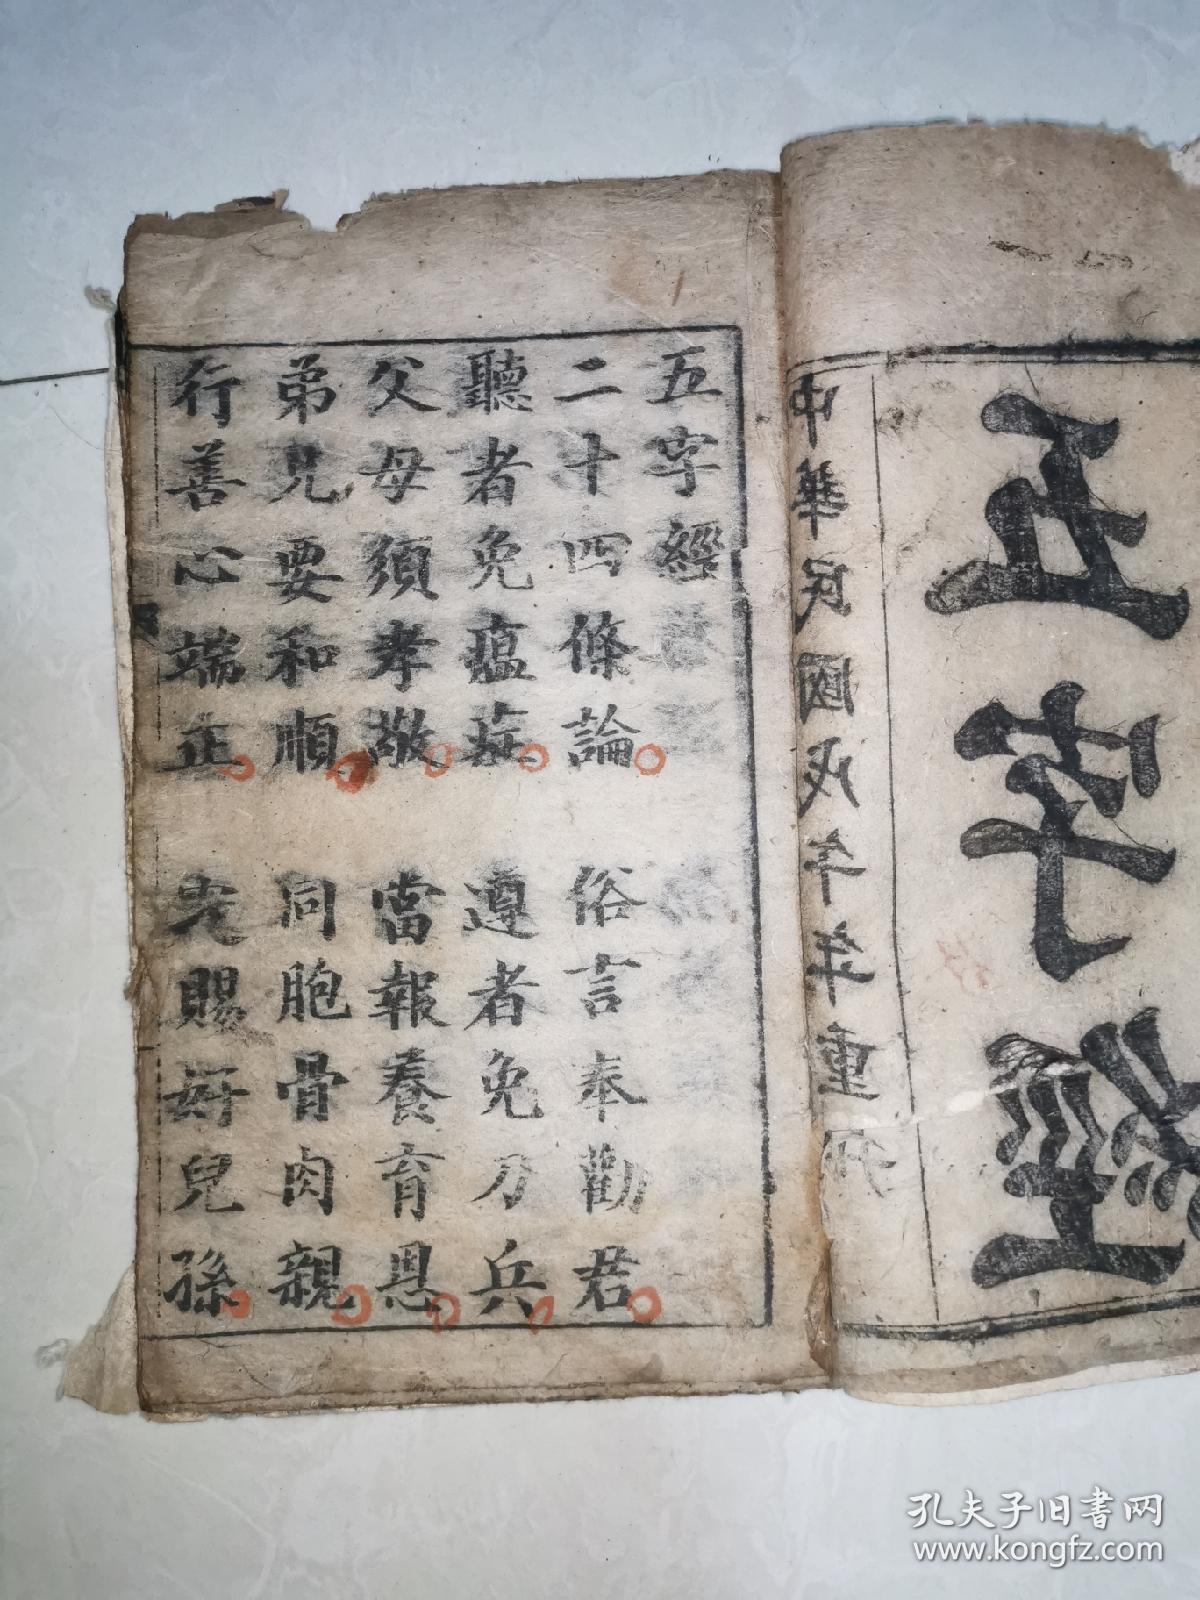 五字經
中華民國戊午年重刊
五字經
二十四條論 俗言奉勸君
聽者免瘟症 遵者免刀兵
父母須孝敬 當報養育恩
弟兄要和順 同胞骨肉親
行善心端正 天賜好兒孫
孔夫子旧书网
www.kongfz.com